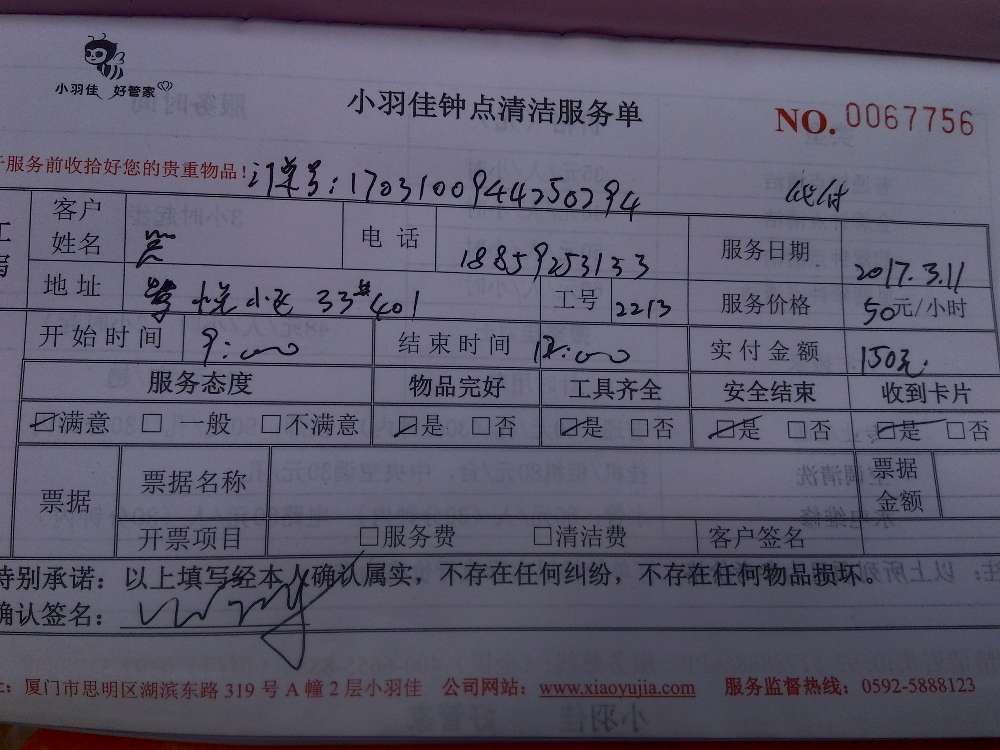 小羽佳 好管家
小羽佳钟点清洁服务单
NO. 0067756
服务前收拾好您的贵重物品！订单号：17031009444250294
客户姓名 电话 18859253133 服务日期 2017.3.11
地址 悦小区 33#401 工号 2213 服务价格 50元/小时
开始时间 9:00 结束时间 12:00 实付金额 150元
服务态度 物品完好 工具齐全 安全结束 收到卡片
☑满意 □一般 □不满意 ☑是 □否 ☑是 □否 ☑是 □否 ☑是 □否
票据 票据名称 票据金额
开票项目 □服务费 □清洁费 客户签名
特别承诺：以上填写经本人确认属实，不存在任何纠纷，不存在任何物品损坏。
确认签名：
厦门市思明区湖滨东路319号A幢2层小羽佳 公司网站：www.xiaoyujia.com 服务监督热线：0592-5888123